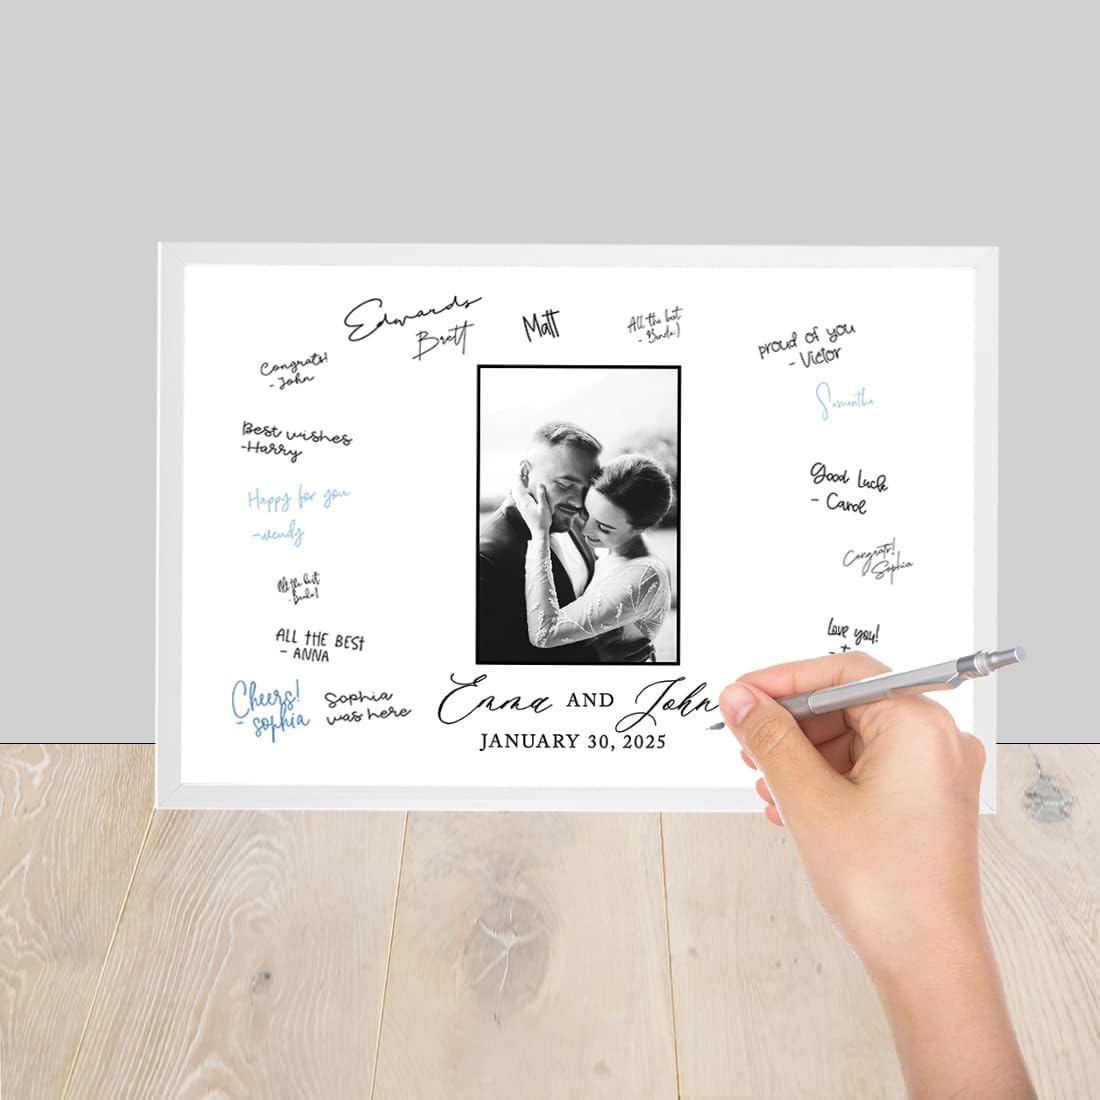 Edwards
Brett
Matt
All the best
proud of you
- Victor
Congrats!
- John
Samantha
Best wishes
-Harry
Good Luck
- Carol
Happy for you
-wendy
Congrats!
Sophia
All the best
ALL THE BEST
- ANNA
love you!
Cheers!
- sophia
Sophia
was here
Emma AND John
JANUARY 30, 2025